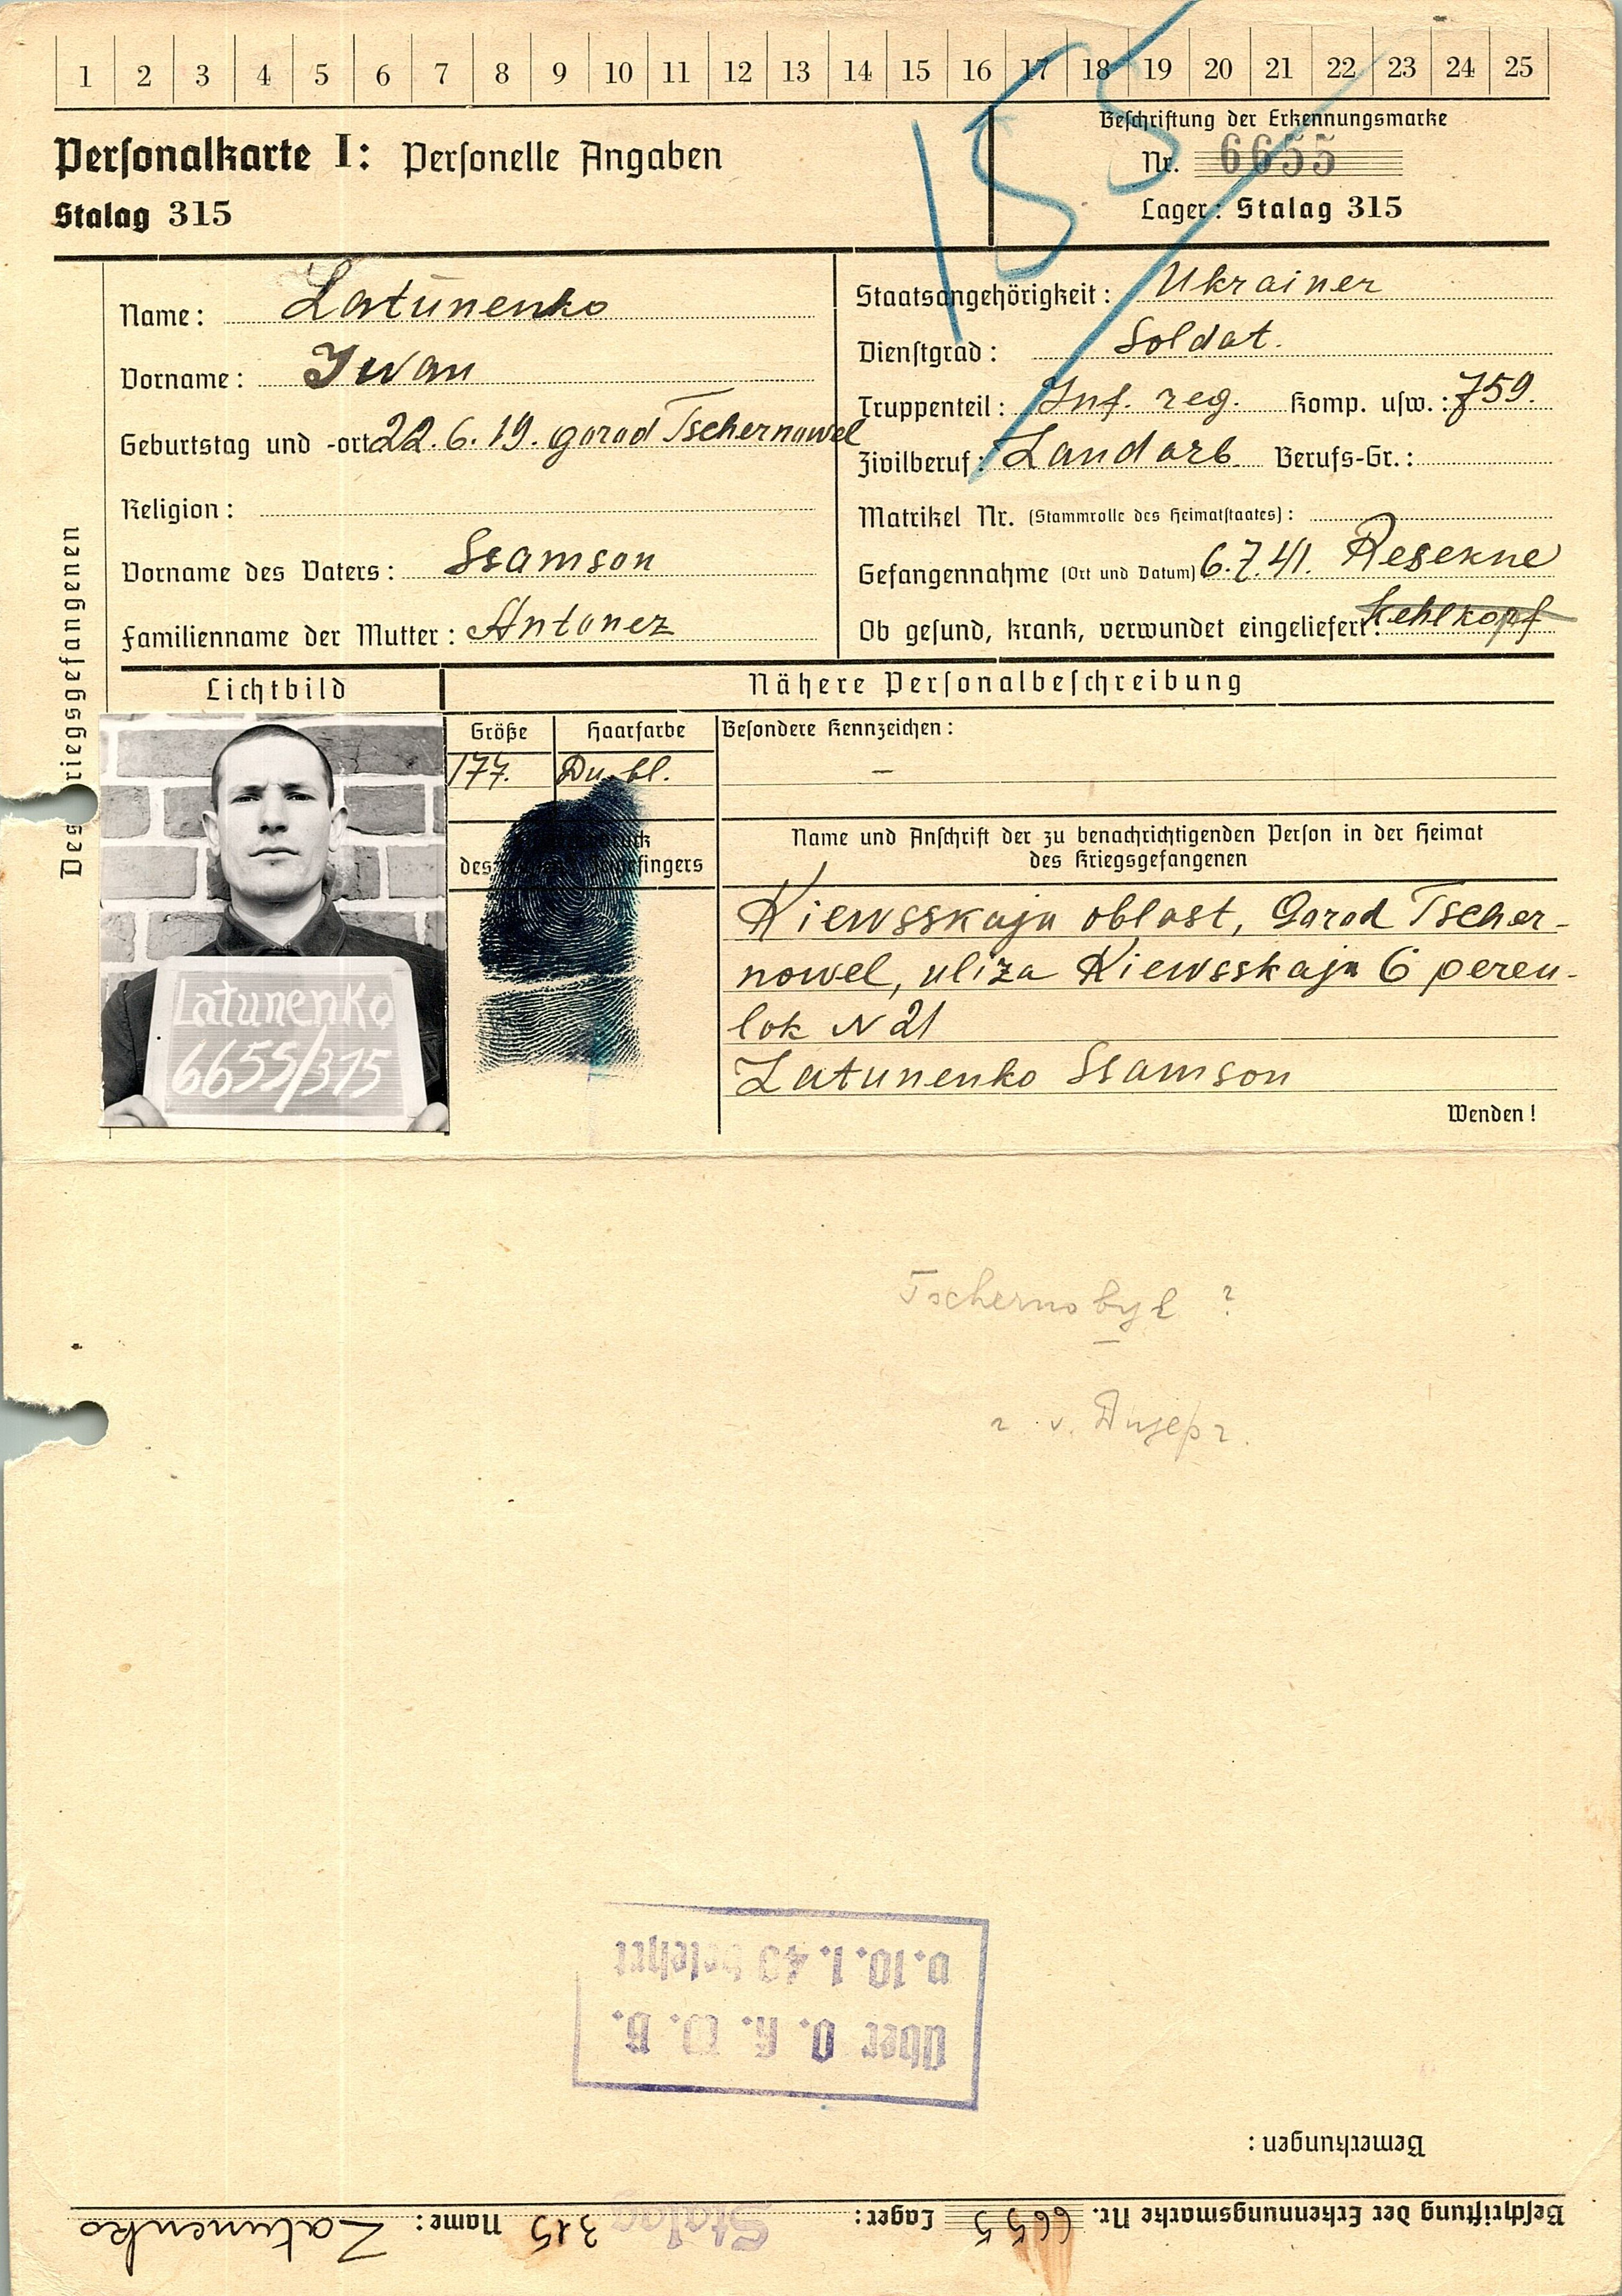 1 2 3 4 5 6 7 8 9 10 11 12 13 14 15 16 17 18 19 20 21 22 23 24 25
155
Personalkarte I: Personelle Angaben
Stalag 315
Beschriftung der Erkennungsmarke
Nr. 6655
Lager: Stalag 315
Des Kriegsgefangenen
Name: Latunenko
Vorname: Iwan
Geburtstag und -ort 22.6.19. gorod Tschernowel
Religion:
Vorname des Vaters: Ssamson
Familienname der Mutter: Antonez
Staatsangehörigkeit: Ukrainer
Dienstgrad: Soldat.
Truppenteil: Inf. reg. Komp. usw.: 759.
Zivilberuf: Landarb. Berufs-Gr.:
Matrikel Nr. (Stammrolle des Heimatstaates):
Gefangennahme (Ort und Datum) 6.7.41. Resekne
Ob gesund, krank, verwundet eingeliefert: Kehlkopf
Lichtbild
Nähere Personalbeschreibung
Größe Haarfarbe Besondere Kennzeichen:
177. Du. bl. –
des fingers
Latunenko
6655/315
Name und Anschrift der zu benachrichtigenden Person in der Heimat
des Kriegsgefangenen
Kiewsskaja oblast, Gorod Tscher-
nowel, uliza Kiewsskaja 6 pereu-
lok N 21
Latunenko Ssamson
Wenden!
Tschernobyl ?
v.
Über O. K. W. B.
v. 10. 1. 40 belehrt
Bemerkungen:
Beschriftung der Erkennungsmarke Nr. 6655 Lager: Stalag 315 Name: Latunenko